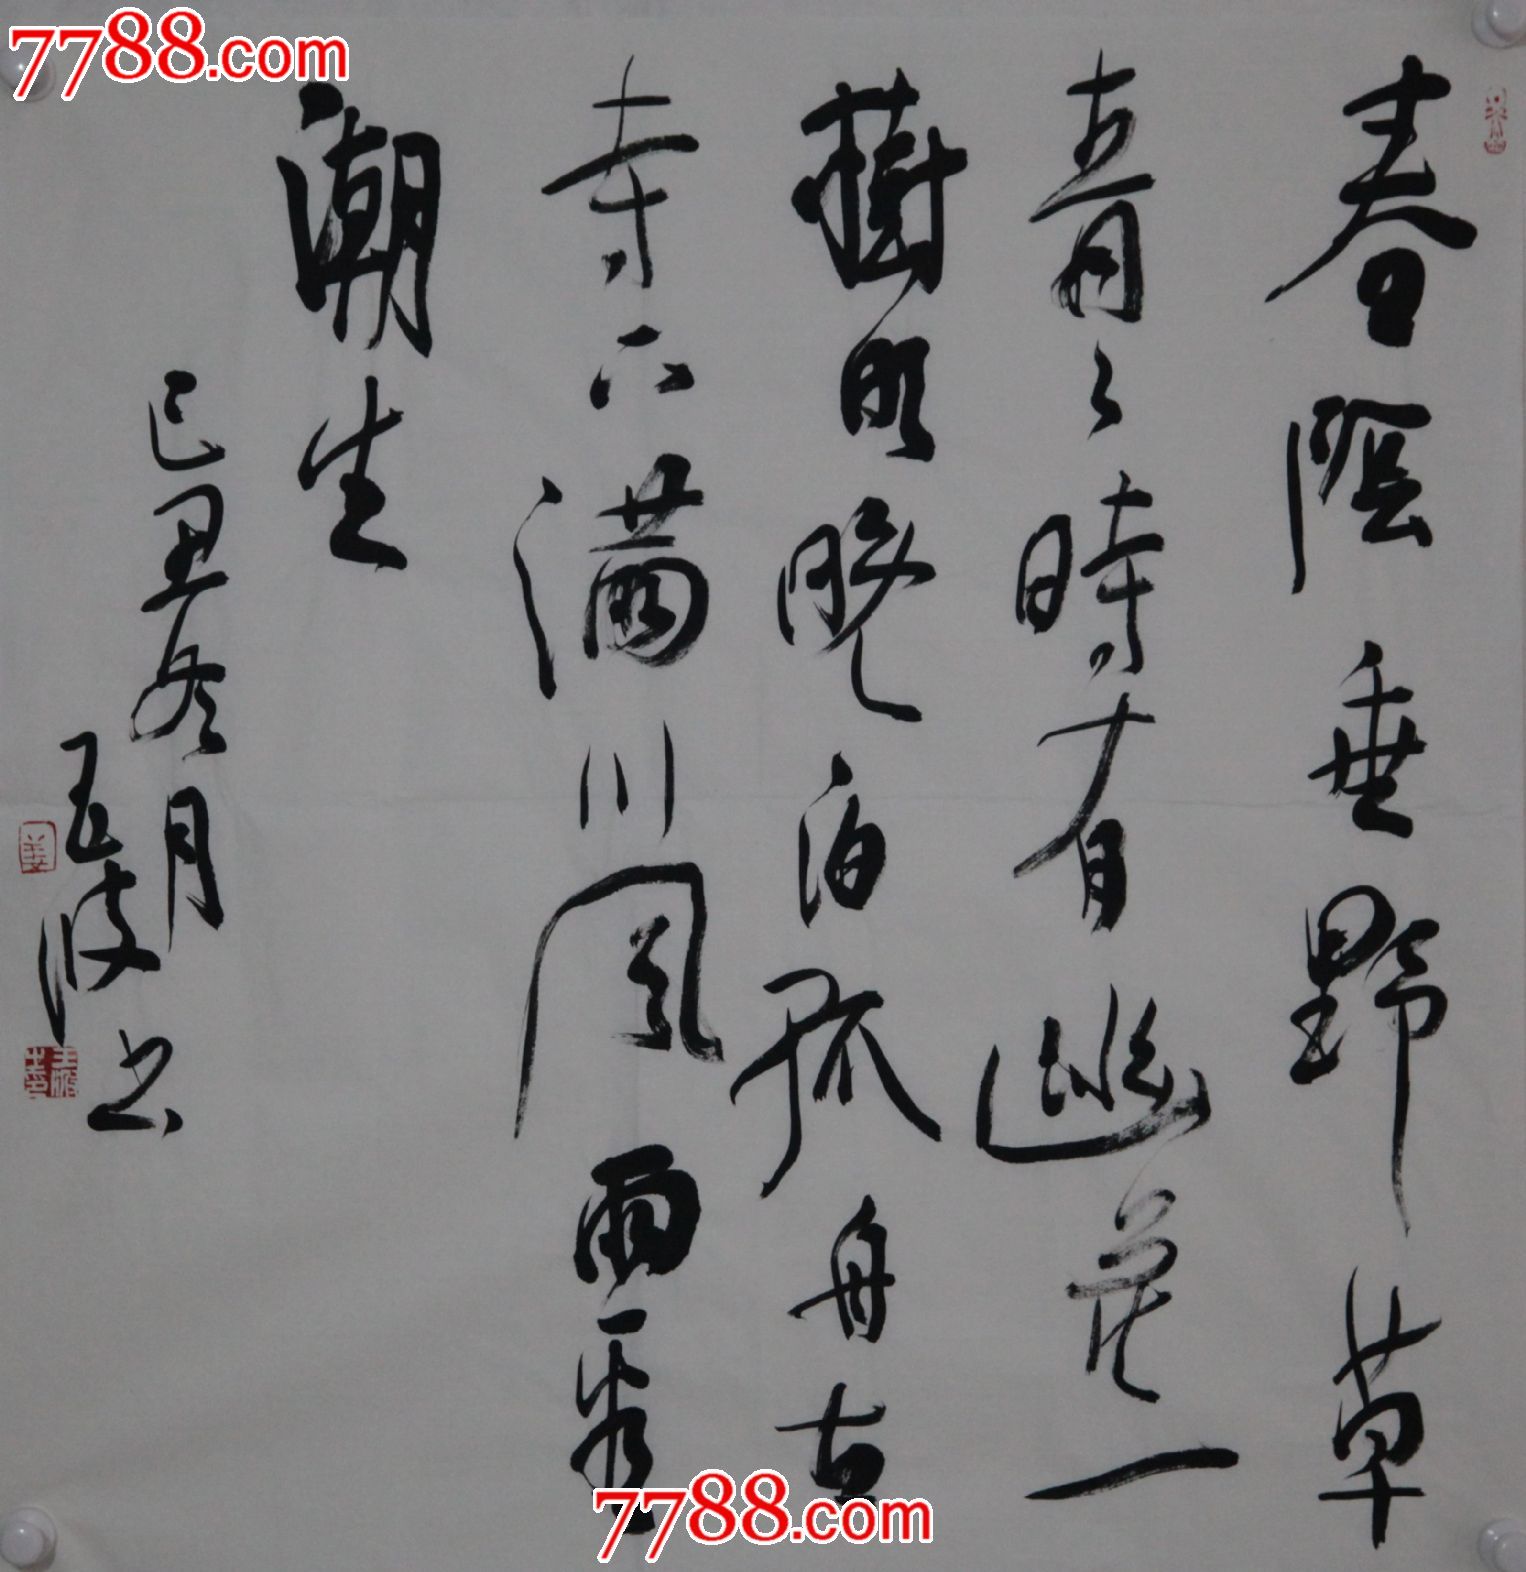 7788.com
春陰垂野草
青々時有幽花一
樹明晚泊孤舟古
寺下滿川風雨看
潮生
己丑冬月
书
7788.com